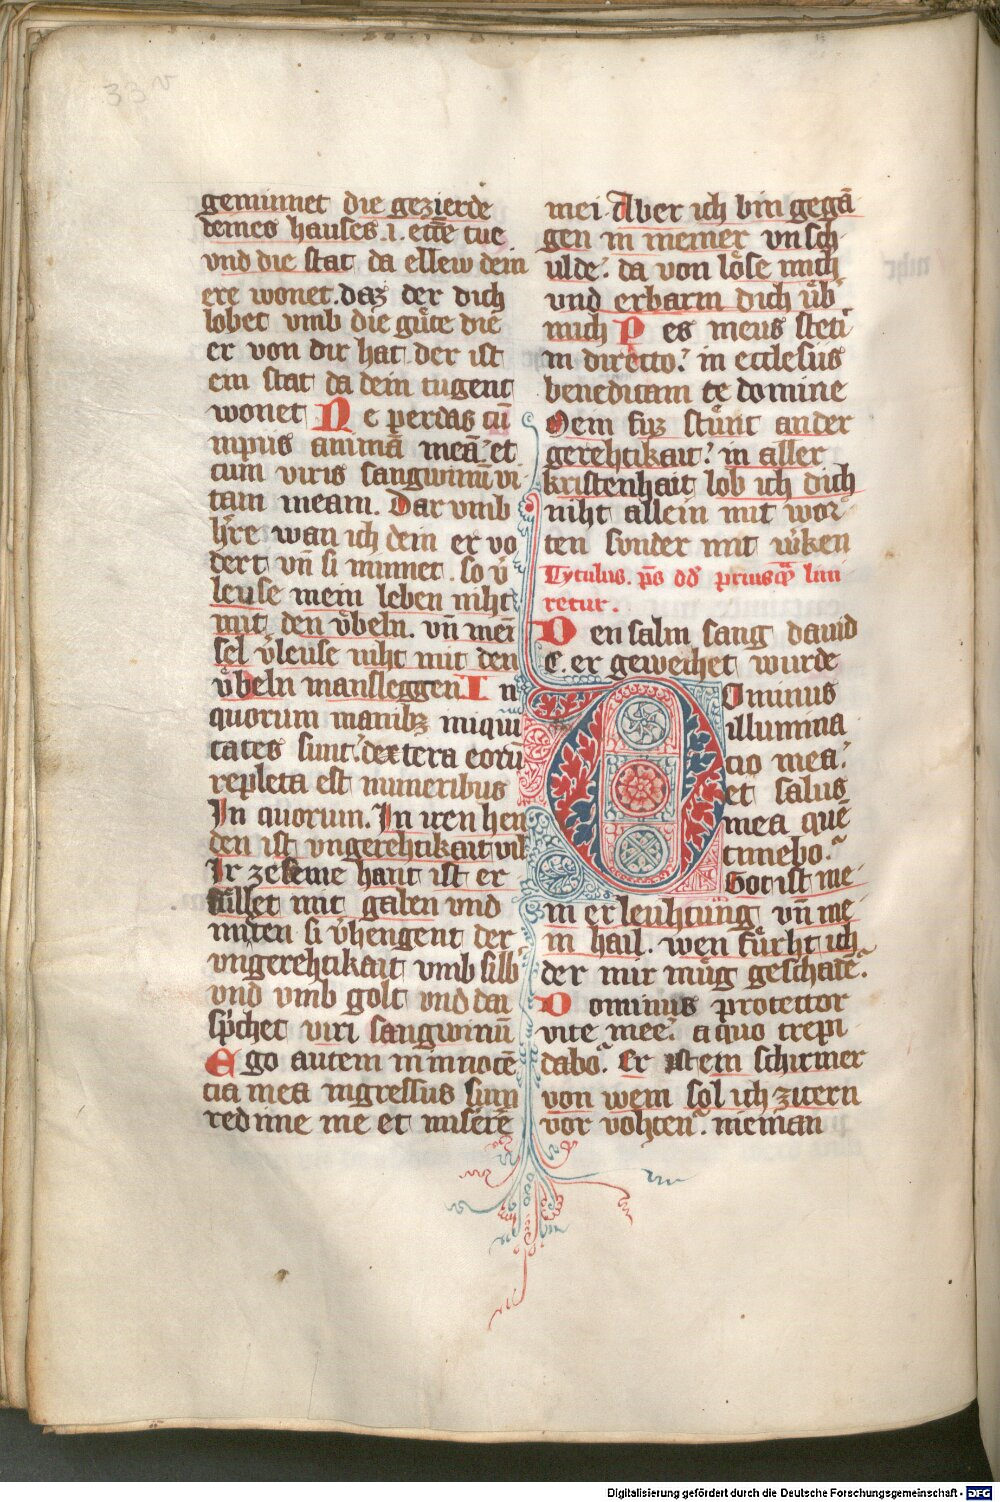 33v
geminnet die gezierde
deines hauses .i. eccē tue
vnd die stat da ellew dein
ere wonet. daz der dich
lobet vmb die guͤte die
er von dir hat. der ist
ein stat da dein tugent
wonet Ne perdas cū
impiis animā meā. et
cum viris sangwinū vi
tam meam. Dar vmb
h̾re wan ich dein er vo
dert vn̄ si minnet. so v̾
leuse mein leben niht
mit den vͤbeln. vn̄ mei
sel v̾leuse niht mit den
vͤbeln mansleggen In
quorum manibꝫ iniqui
tates sunt. dextera eorū
repleta est muneribus
In quorum. In iren hen
den ist vngerehtikait vil
Ir zeseme hant ist er
fuͤllet mit gaben vnd
mieten si v̾hengent der
vngerehtikait vmb silb̾
vnd vmb golt vnd daı
sp̾chet viri sangwinū
Ego autem in innocē
cia mea ingressus sum
redime me et miserē
mei. Aber ich bin gegā
gen in meiner vnsch
ulde. da von loͤse mich
vnd erbarm dich uͤb̾
mich Pes meus steti
in directo. in ecclesiis
benedicam te domine
Mein fuz stuͤnt an der
gerehtikait. in aller
kristenhait lob ich dich
niht allein mit wor
ten sunder mit w̾ken
Tytulus. ps̄ dd̄ priusqͣ lini
retur.
Den salm sang dauid
E. er geweihet wurde
Dominus
illumina
cio mea.
et salus
mea quē
timebo.
Got ist me
in erleuhtung vn̄ me
in hail. wen fuͤrht ich
der mir muͤg geschatē.
Dominus protector
vite mee. a quo trepi
dabo. Er ist ein schirmer
von wem sol ich zitern
vor vohten. nieman
Digitalisierung gefördert durch die Deutsche Forschungsgemeinschaft - DFG